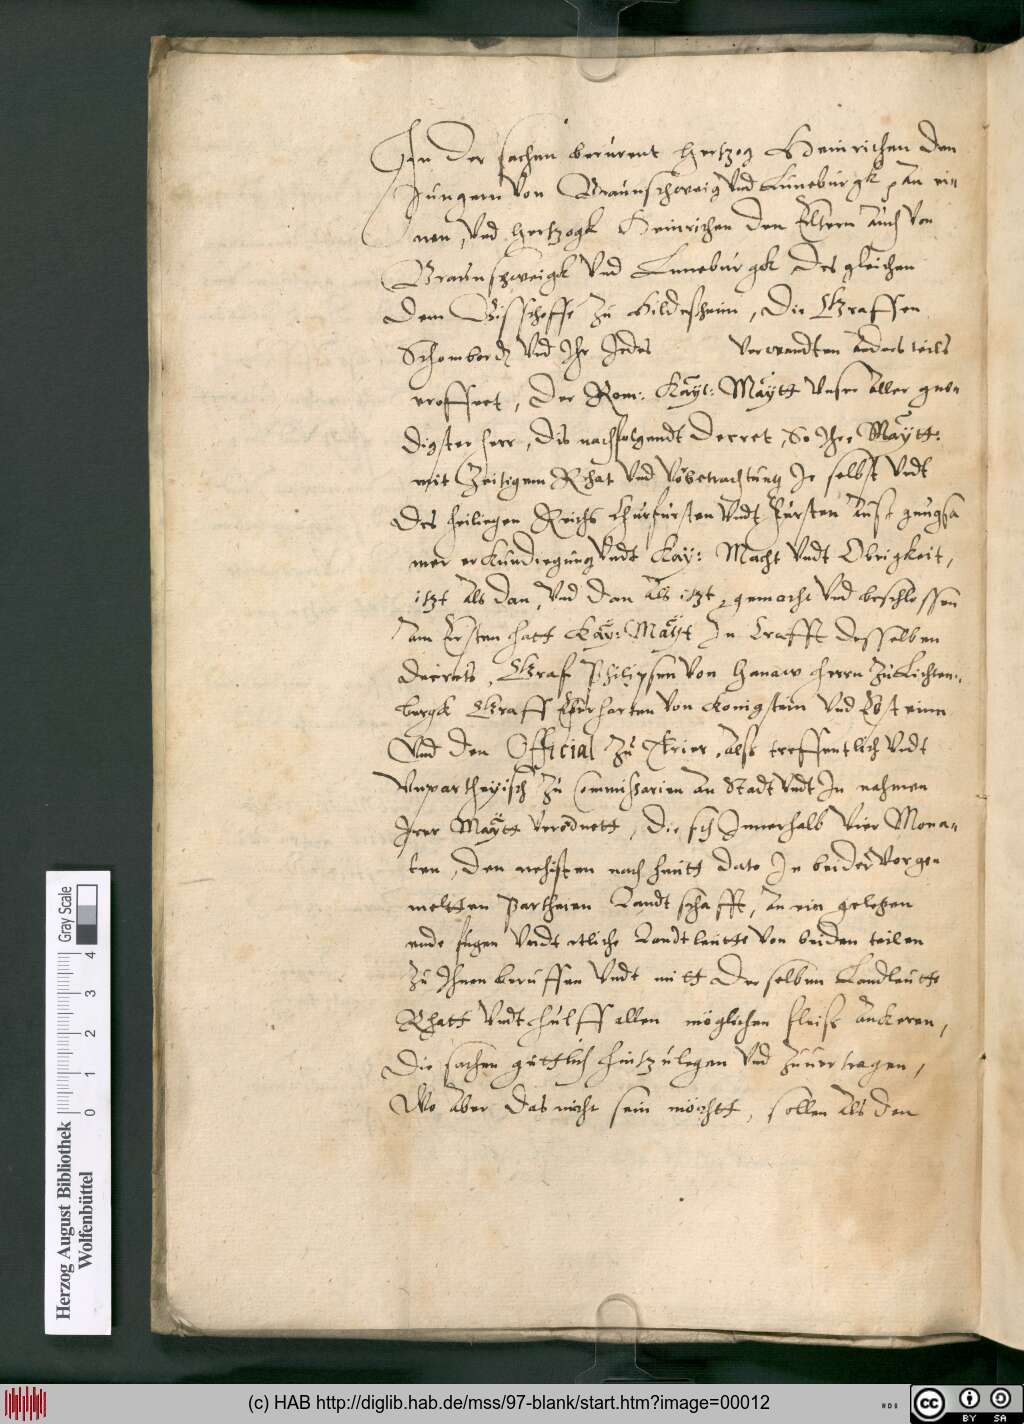 In der sachen berurent hertzog Heinrichen den
Jungern von Braunschweig vnd Luneburgk, an ei-
nen, vnd hertzogk Heinrichen den Eltern auch von
Braunschweigk vnd Luneburgk des gleichen
dem Bisschoffe zu Hildesheim, die Graffen
Schomberch vnd Ihr Jedes verwandten anders teils
eroffnet, der Rom: Kayl: Maytt vnser aller gne-
digster herr, dis nachfolgendt decret, So Ihre Maytt:
mit Zeitigem Rhat vnd vorbetrachtung Ir selbst vndt
des heiliegen Reichs Churfursten vndt Fursten aust gnugsa
mer erkundiegung vndt Kay: Macht vndt Obrigkeit,
itzt als dan, vnd dan als itzt, gemacht vnd beschlossen
am Ersten hatt Kay: Mayt In Crafft desselben
decrets, Graf Philipsen von Hanaw herrn zu Lichten-
bergk Graff Eberharten von Konigstein vnd Epsteinn
Vnd den Official zu Trier, alss treffentlich vndt
vnpartheyisch zu Commissarien an Stadt vndt In nahmen
Irer Maytt verodnett, die sich Innerhalb vier Mona-
ten, den nehisten nach heutt dato In beider vorge
meltten Partheien Landtschafft, an ein gelegen
ende fugen vndt etliche Landtleutte von beiden teilen
zu Ihnen beruffen vndt mitt derselben Landleutte
Rhatt vndt hulff allen möglichen fleiss anckeren,
die sachen guttlich hintzulegen vnd zuuertragen,
Wo aber das nicht sein möchtt, sollen als den
Herzog August Bibliothek
Wolfenbüttel
0 1 2 3 4
Gray Scale
(c) HAB http://diglib.hab.de/mss/97-blank/start.htm?image=00012
cc BY SA